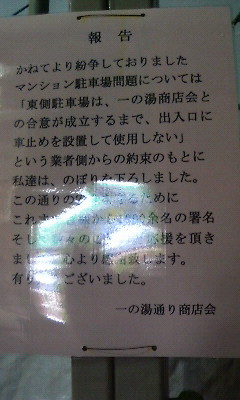 報告
かねてより紛争しておりました
マンション駐車場問題については
「東側駐車場は、一の湯商店会と
の合意が成立するまで、出入口に
車止めを設置して使用しない」
という業者側からの約束のもとに
私達は、のぼりを下ろしました。
この通りの ためにために
これま 余名の署名
そし 応援を頂き
まし 心より します。
有り ございました。
一の湯通り商店会